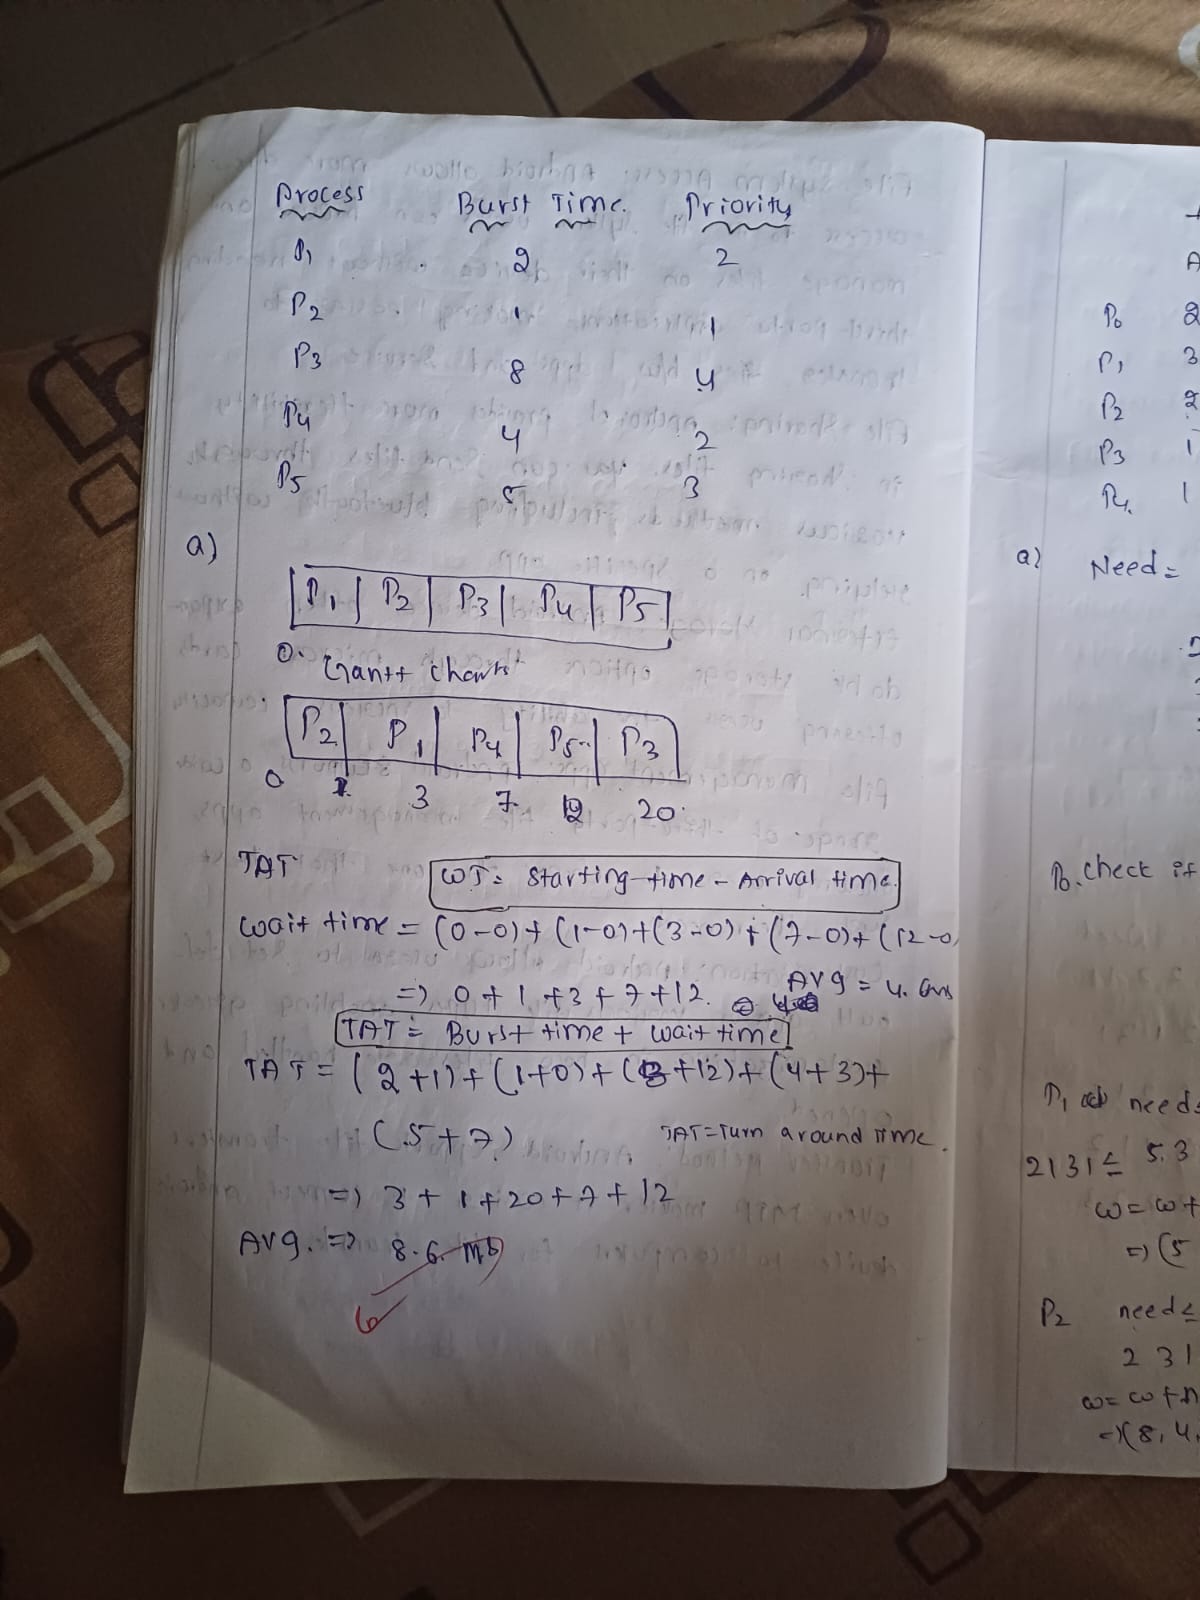 Process Burst Time Priority
P1 2 2
P2 1 1
P3 8 4
P4 4 2
P5 5 3
a)
P1 P2 P3 P4 P5
0
Gantt charts
P2 P1 P4 P5 P3
0 1 3 7 12 20
TAT
WT = Starting time - Arrival time
Wait time = (0-0)+(1-0)+(3-0)+(7-0)+(12-0)
=> 0+1+3+7+12.
Avg = 4. 6ms
TAT = Burst time + wait time
TAT = (2+1)+(1+0)+(8+12)+(4+3)+
(5+7)
TAT = Turn around Time.
=> 3+1+20+7+12
Avg. => 8.6
6
A
P0 2
P1 3
P2 2
P3 1
P4. 1
a) Need =
P0. check if
P1 need ≤
2131 ≤ 5.3
w = w+
=> (5
P2 need ≤
2 31
w = w+
=> (8, 4,